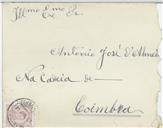 Illmo Exmo Sr.
António José d'Almeida
Na Cadeia de
Coimbra